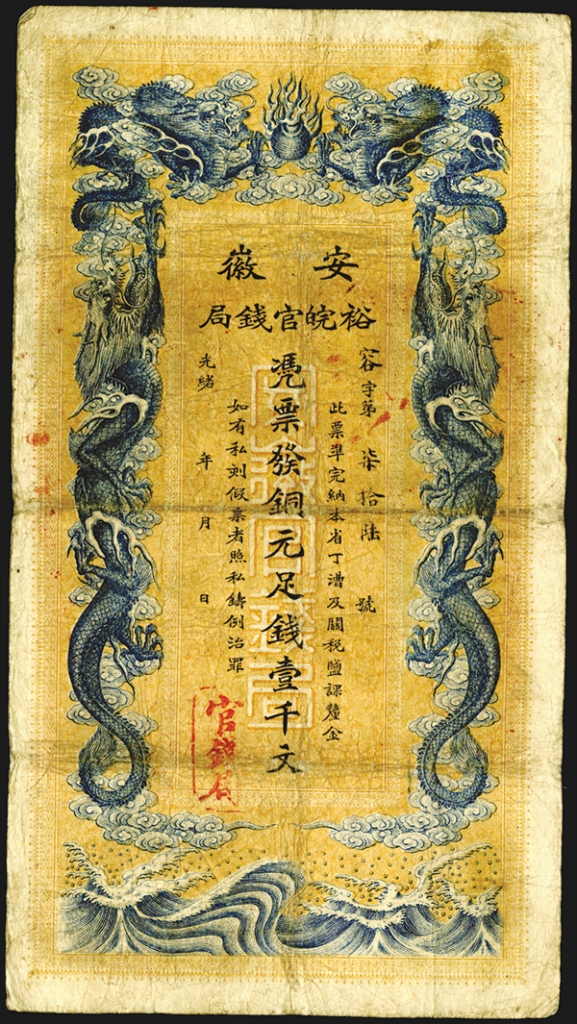 安徽
裕皖官錢局
容字第柒拾陸號
此票準完納本省丁漕及關稅鹽課釐金
憑票發銅元足錢壹千文
如有私刻假票者照私鑄例治罪
光緒 年 月 日
官錢局